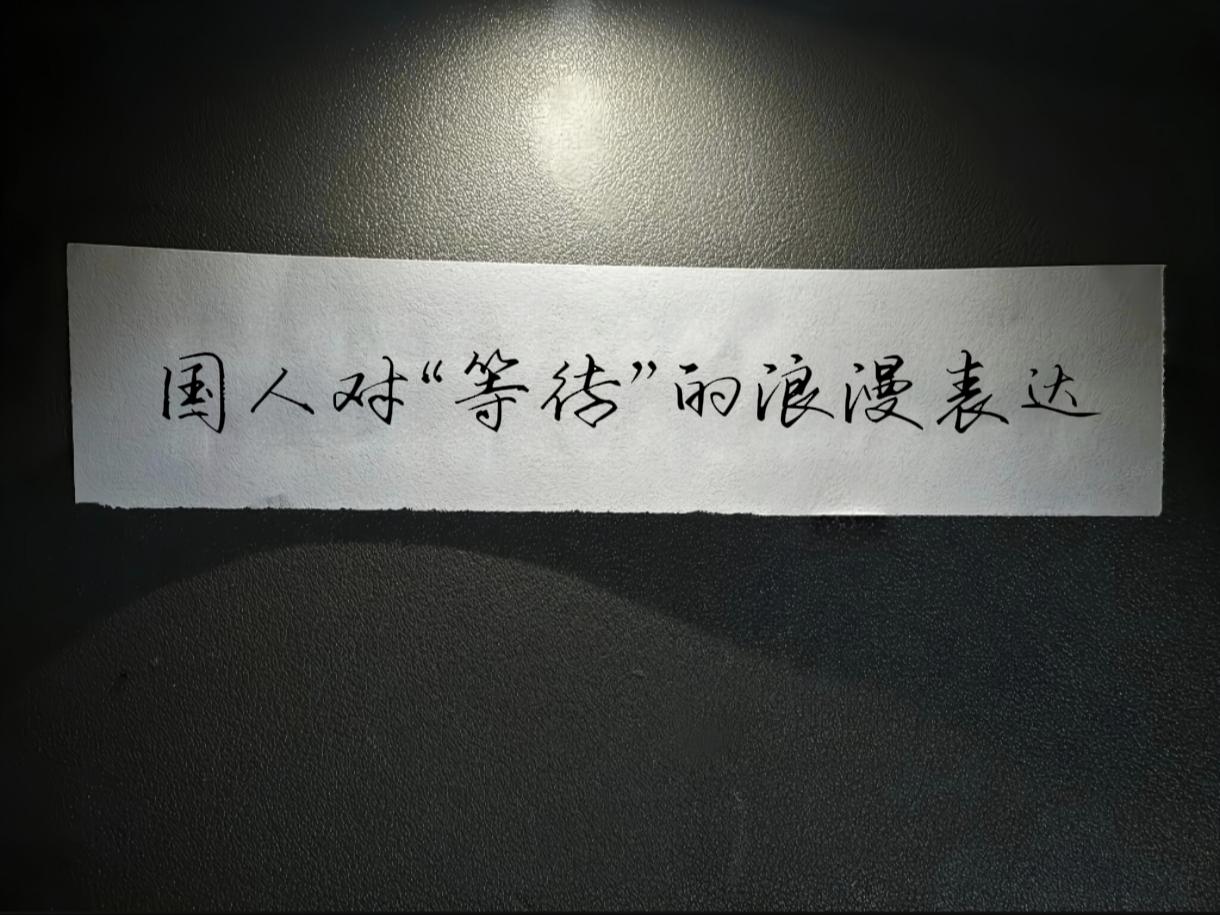 国人对“等待”的浪漫表达